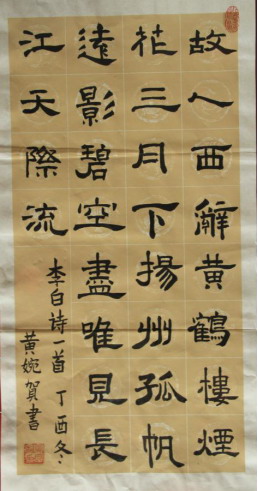 故人西辭黃鶴樓煙
花三月下揚州孤帆
遠影碧空盡唯見長
江天際流
李白诗一首 丁酉冬
黄婉贺書